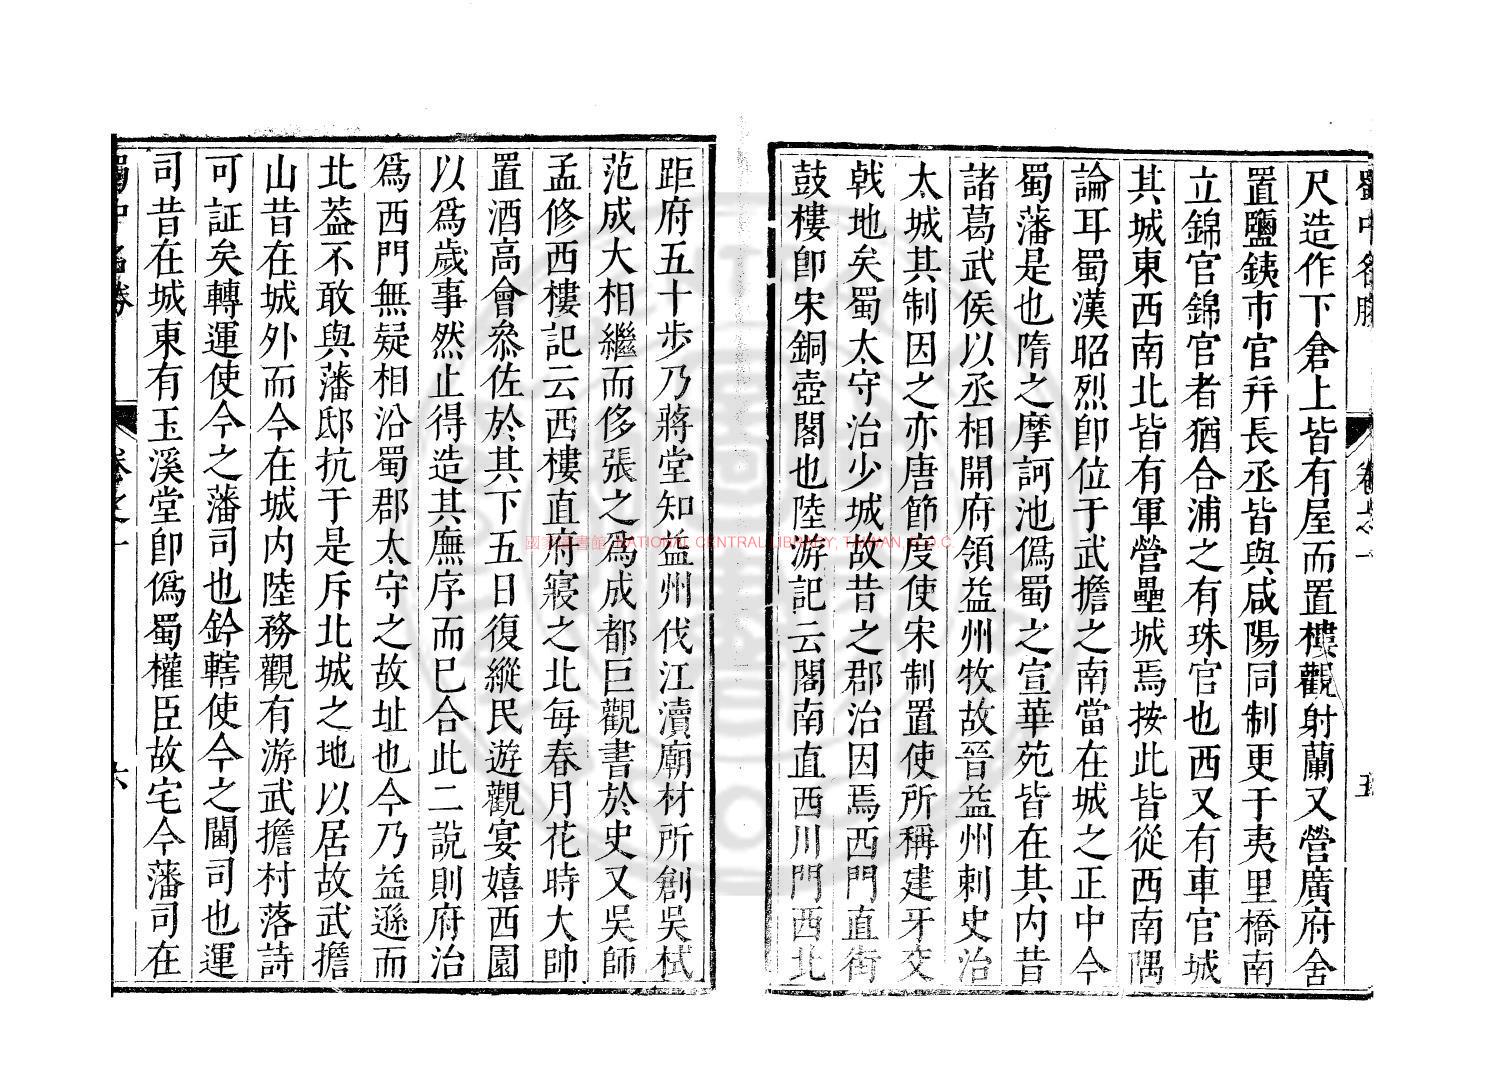 蜀中名勝 卷之一 五
尺造作下倉上皆有屋而置樓觀射蘭又營廣府舍
置鹽鐵市官并長丞皆與咸陽同制更于夷里橋南
立錦官錦官者猶合浦之有珠官也西又有車官城
其城東西南北皆有軍營壘城焉按此皆從西南隅
論耳蜀漢昭烈卽位于武擔之南當在城之正中今
蜀藩是也隋之摩訶池僞蜀之宣華苑皆在其內昔
諸葛武侯以丞相開府領益州牧故晉益州刺史治
太城其制因之亦唐節度使宋制置使所稱建牙交
戟地矣蜀太守治少城故昔之郡治因焉西門直街
鼓樓卽宋銅壺閣也陸游記云閣南直西川門西北
距府五十步乃蔣堂知益州伐江瀆廟材所創吳栻
范成大相繼而侈張之爲成都巨觀書於史又吳師
孟修西樓記云西樓直府寢之北每春月花時大帥
置酒高會叅佐於其下五日復縱民遊觀宴嬉西園
以爲歲事然止得造其廡序而巳合此二說則府治
爲西門無疑相沿蜀郡太守之故址也今乃益遜而
北葢不敢與藩邸抗于是斥北城之地以居故武擔
山昔在城外而今在城內陸務觀有游武擔村落詩
可証矣轉運使今之藩司也鈐轄使今之閫司也運
司昔在城東有玉溪堂卽僞蜀權臣故宅今藩司在
蜀中名勝 卷之一 六
國家圖書館 NATIONAL CENTRAL LIBRARY, TAIWAN, R.O.C.